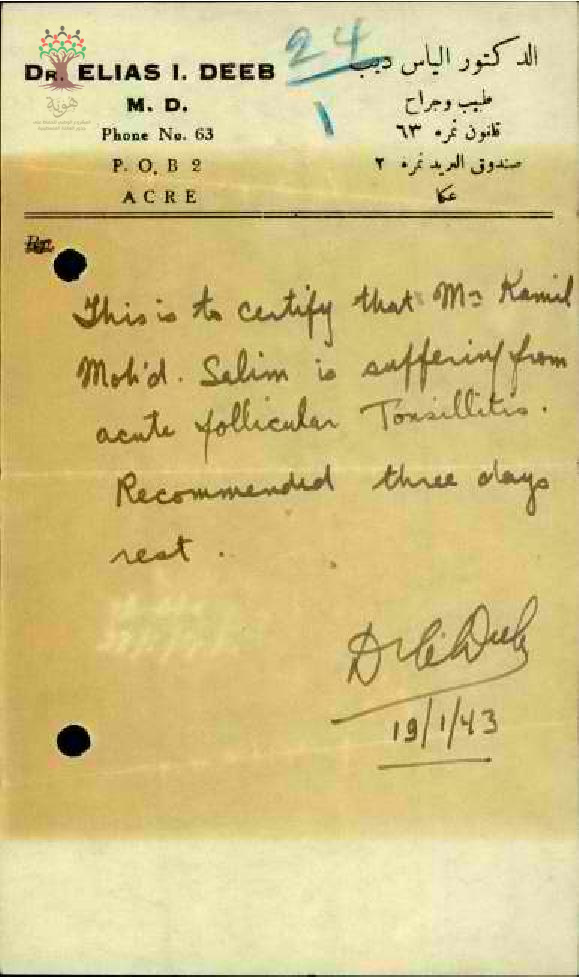 DR. ELIAS I. DEEB
M. D.
Phone No. 63
P. O, B 2
ACRE
24
1
الدكتور الياس ديب
طبيب وجراح
قانون نمره ٦٣
صندوق البريد نمره ٢
عكا
هوية
This is to certify that Mr Kamil
Moh'd. Salim is suffering from
acute follicular Tonsillitis.
Recommended three days
rest.
Dr Deeb
19/1/43